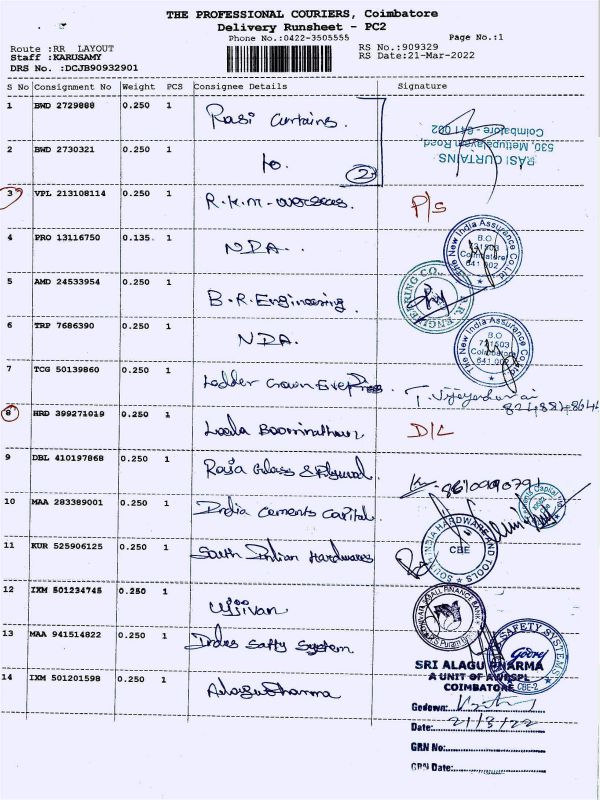 THE PROFESSIONAL COURIERS, Coimbatore
Delivery Runsheet - PC2
Phone No.:0422-3505555
Page No.:1
Route :RR LAYOUT
RS No.:909329
Staff :KARUSAMY
RS Date:21-Mar-2022
DRS No. :DCJB90932901
S No Consignment No Weight PCS Consignee Details Signature
1 BWD 2729888 0.250 1 Rasi Curtains.
2 BWD 2730321 0.250 1 to. 2
RASI CURTAINS
530, Mettupalayam Road,
Coimbatore - 641 002
3 VPL 213108114 0.250 1 R.K.M. overseas. P/s
4 PRO 13116750 0.135 1 NDA..
The New India Assurance Co.Ltd
B.O
721503
Coimbatore
641 002
5 AMD 24533954 0.250 1 B.R. Engineering
B.R. ENGINEERING CO.
6 TRP 7686390 0.250 1 NDA.
The New India Assurance Co.Ltd
B.O
721503
Coimbatore
641 002
7 TCG 50139860 0.250 1 Ladder Crown
8 HRD 399271019 0.250 1 Leela D/L
9 DBL 410197868 0.250 1 Raja Glass & Plywood. 8610990791
10 MAA 283389001 0.250 1 India Cements Capital.
11 KUR 525906125 0.250 1 South Indian Hardwares
SOUTH INDIA HARDWARE AND TOOLS
CBE
12 IXM 501234745 0.250 1 Ujjivan
UJJIVAN SMALL FINANCE BANK
R.S Puram
13 MAA 941514822 0.250 1 Indes Safty System
SAFETY SYSTEMS
Godrej
CBE-2
14 IXM 501201598 0.250 1 Alagu Pharma
SRI ALAGU PHARMA
A UNIT OF
COIMBATORE
Godown:
Date: 21/3/22
GRN No:
GRN Date: